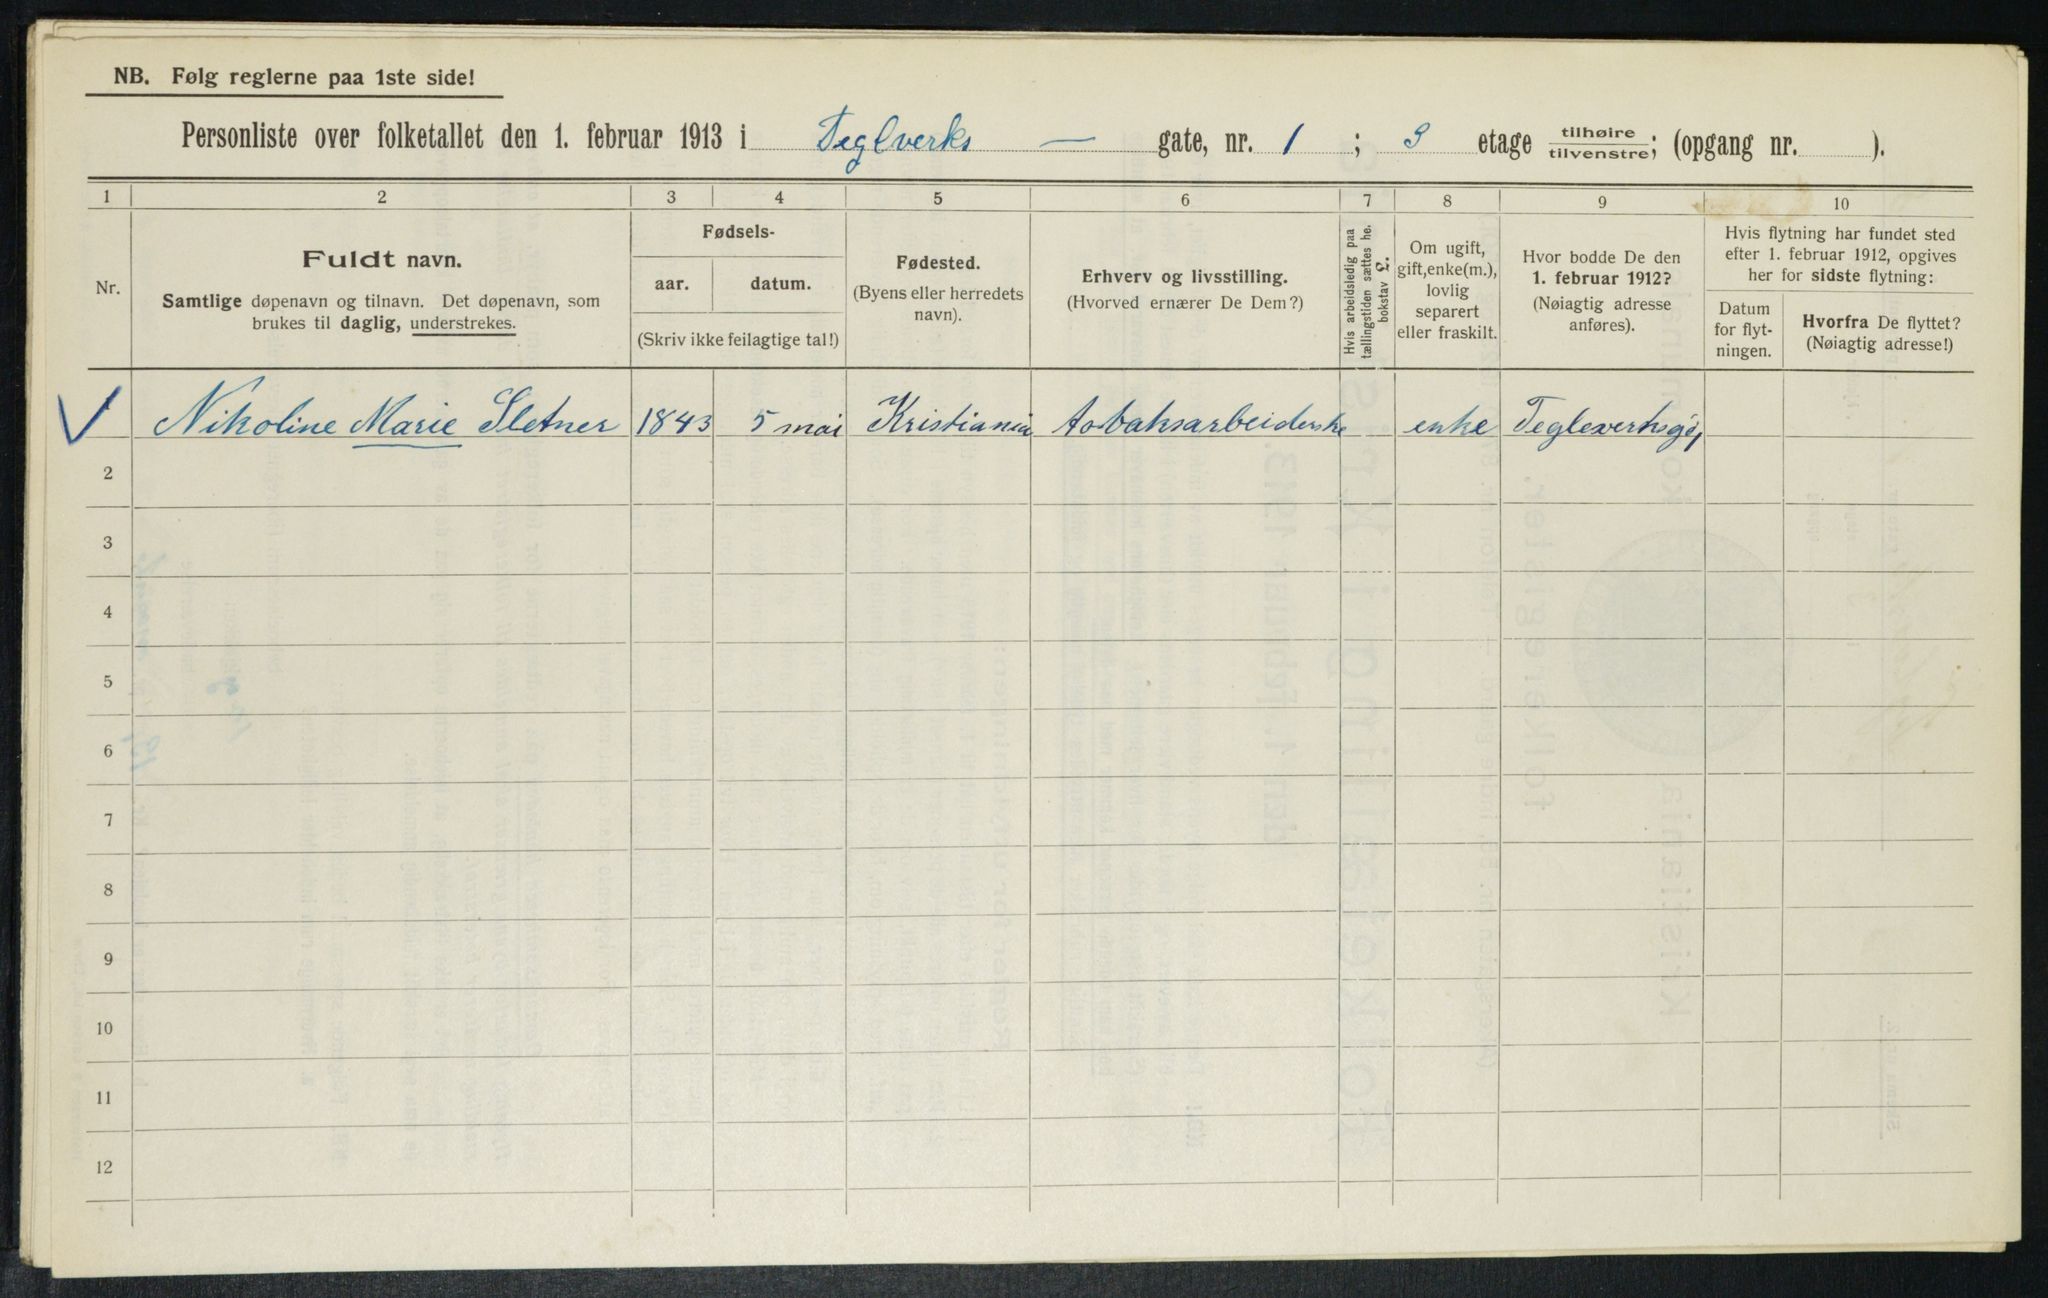 NB. Følg reglerne paa 1ste side!
Personliste over folketallet den 1. februar 1913 i Teglverks — gate, nr. 1 ; 3 etage tilhøire tilvenstre; (opgang nr. ).
1 2 3 4 5 6 7 8 9 10
Nr.
Fuldt navn.
Samtlige døpenavn og tilnavn. Det døpenavn, som
brukes til daglig, understrekes.
Fødsels-
aar. datum.
(Skriv ikke feilagtige tal!)
Fødested.
(Byens eller herredets
navn).
Erhverv og livsstilling.
(Hvorved ernærer De Dem?)
Hvis arbeidsledig paa
tællingstiden sættes he.
bokstav L.
Om ugift,
gift, enke(m.),
lovlig
separert
eller fraskilt.
Hvor bodde De den
1. februar 1912?
(Nøiagtig adresse
anføres).
Hvis flytning har fundet sted
efter 1. februar 1912, opgives
her for sidste flytning:
Datum
for flyt-
ningen.
Hvorfra De flyttet?
(Nøiagtig adresse!)
1 Nikoline Marie Sletner 1843 5 mai Kristiania Tobaksarbeiderske enke
2
3
4
5
6
7
8
9
10
11
12